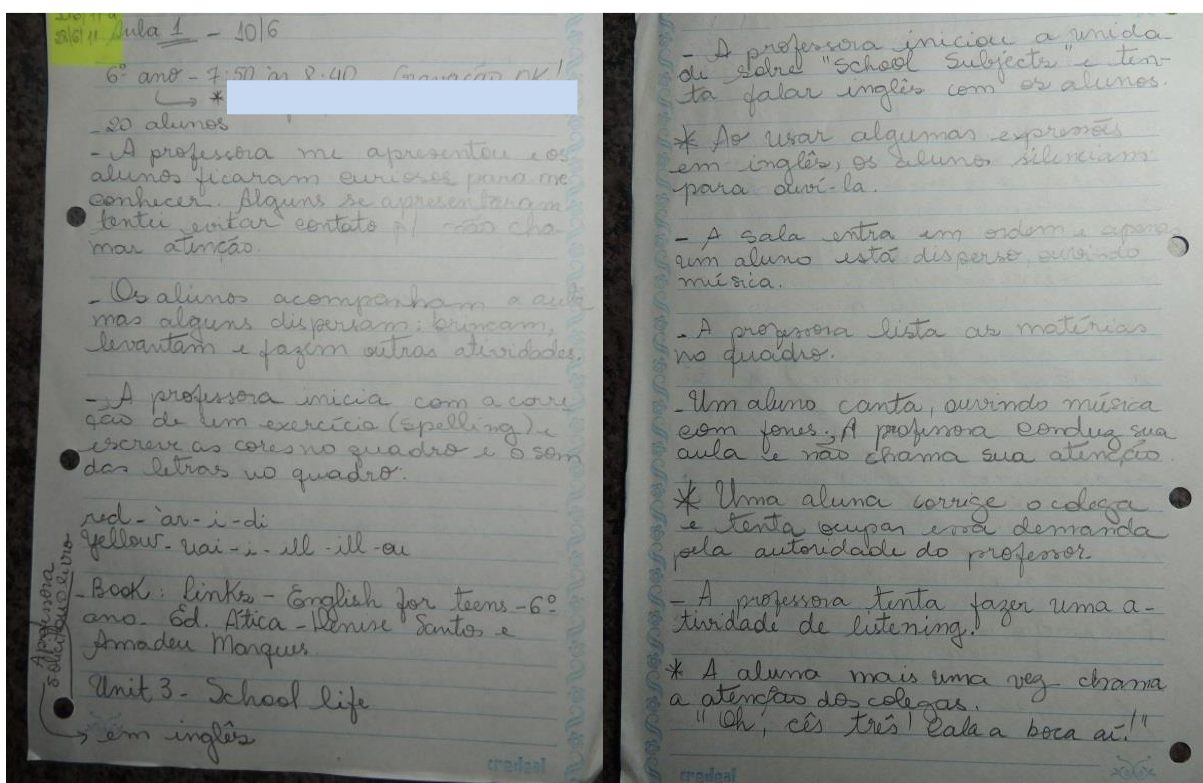 28/6/11
Aula 1 - 10/6
6º ano - 7:50 às 8:40 Gravação OK!
*
- 20 alunos
- A professora me apresentou e os
alunos ficaram curiosos para me
conhecer. Alguns se apresentaram
tentei evitar contato p/ não cha-
mar atenção.
- Os alunos acompanham a aula
mas alguns dispersam: brincam,
levantam e fazem outras atividades.
- A professora inicia com a corre-
ção de um exercício (spelling) e
escreve as cores no quadro e o som
das letras no quadro.
red - ar - i - di
Yellow - uai - i - ill - ill - ou
- Book: Links - English for teens - 6º
ano - Ed. Ática - Denise Santos e
Amadeu Marques
Unit 3 - School life
em inglês
A professora
solicitou o livro
credeal
- A professora iniciou a unida-
de sobre "School Subjects" e ten-
ta falar inglês com os alunos.
* Ao usar algumas expressões
em inglês, os alunos silenciam
para ouví-la.
- A sala entra em ordem e apenas
um aluno está disperso, ouvindo
música.
- A professora lista as matérias
no quadro.
- Um aluno canta, ouvindo música
com fones. A professora conduz sua
aula e não chama sua atenção.
* Uma aluna corrige o colega
e tenta ocupar essa demanda
pela autoridade do professor.
- A professora tenta fazer uma a-
tividade de listening.
* A aluna mais uma vez chama
a atenção dos colegas.
"Oh, cês três! Cala a boca aí!"
credeal